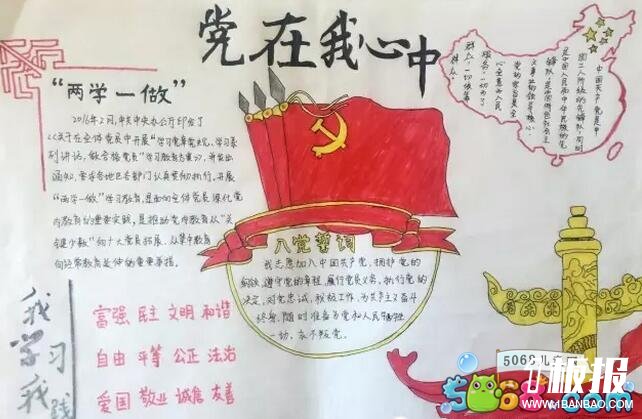 党在我心中
“两学一做”
2016年2月,中共中央办公厅印发了
《关于在全体党员中开展“学习党章党规、学习系
列讲话,做合格党员”学习教育方案》,并发出
通知,要求各地区各部门认真贯彻执行。开展
“两学一做”学习教育,是面向全体党员深化党
内教育的重要实践,是推动党内教育从“关
键少数”向广大党员拓展、从集中教育
向经常教育延伸的重要举措。
中国共产党是中
国工人阶级的先锋队,同时
是中国人民和中华民族的先
锋队,是中国特色社会主
义事业的领导核心。
党的宗旨是全
心全意为人民
服务,一切为了
群众,一切依靠
群众。
入党誓词
我志愿加入中国共产党,拥护党的
纲领,遵守党的章程,履行党员义务,执行党的
决定,对党忠诚,积极工作,为共产主义奋斗
终身,随时准备为党和人民牺牲
一切,永不叛党。
我学习我践
富强 民主 文明 和谐
自由 平等 公正 法治
爱国 敬业 诚信 友善
5068儿童
1板报
www.1BANBAO.COM